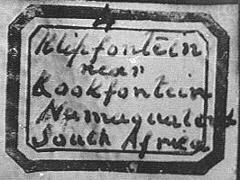 Klipfontein
near
Kookfontein
Namaqualand
South Africa